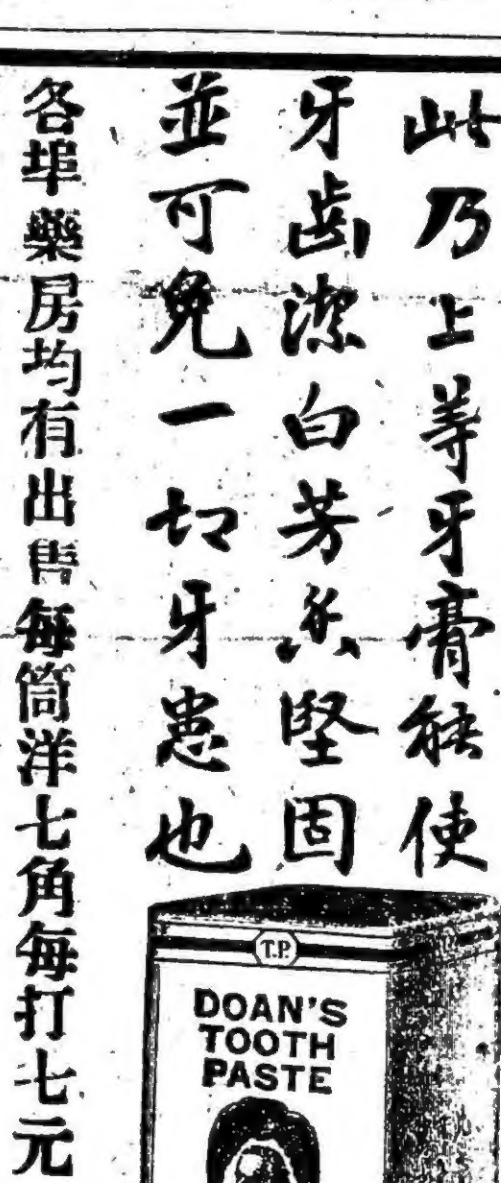 此乃上等牙膏能使
牙齒潔白芳香堅固
並可免一切牙患也
各埠藥房均有出售每筒洋七角每打七元
T.P.
DOAN'S
TOOTH
PASTE